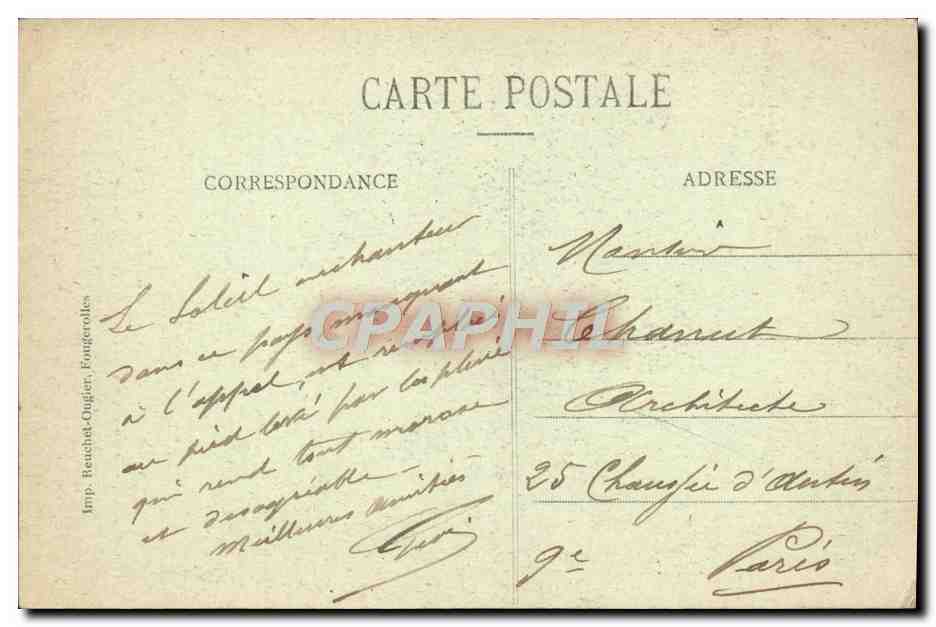 CARTE POSTALE
CORRESPONDANCE
ADRESSE
Le Soleil enchanteur
dans ce pays manquant
à l'appel, est remplacé
au pied levé par la pluie
qui rend tout morose
et désagréable —
Meilleures amitiés
Monsieur
Charrut
Architecte
25 Chaussée d'Antin
9e Paris
Imp. Reuchet-Ougier, Fougerolles
CPAPHIL